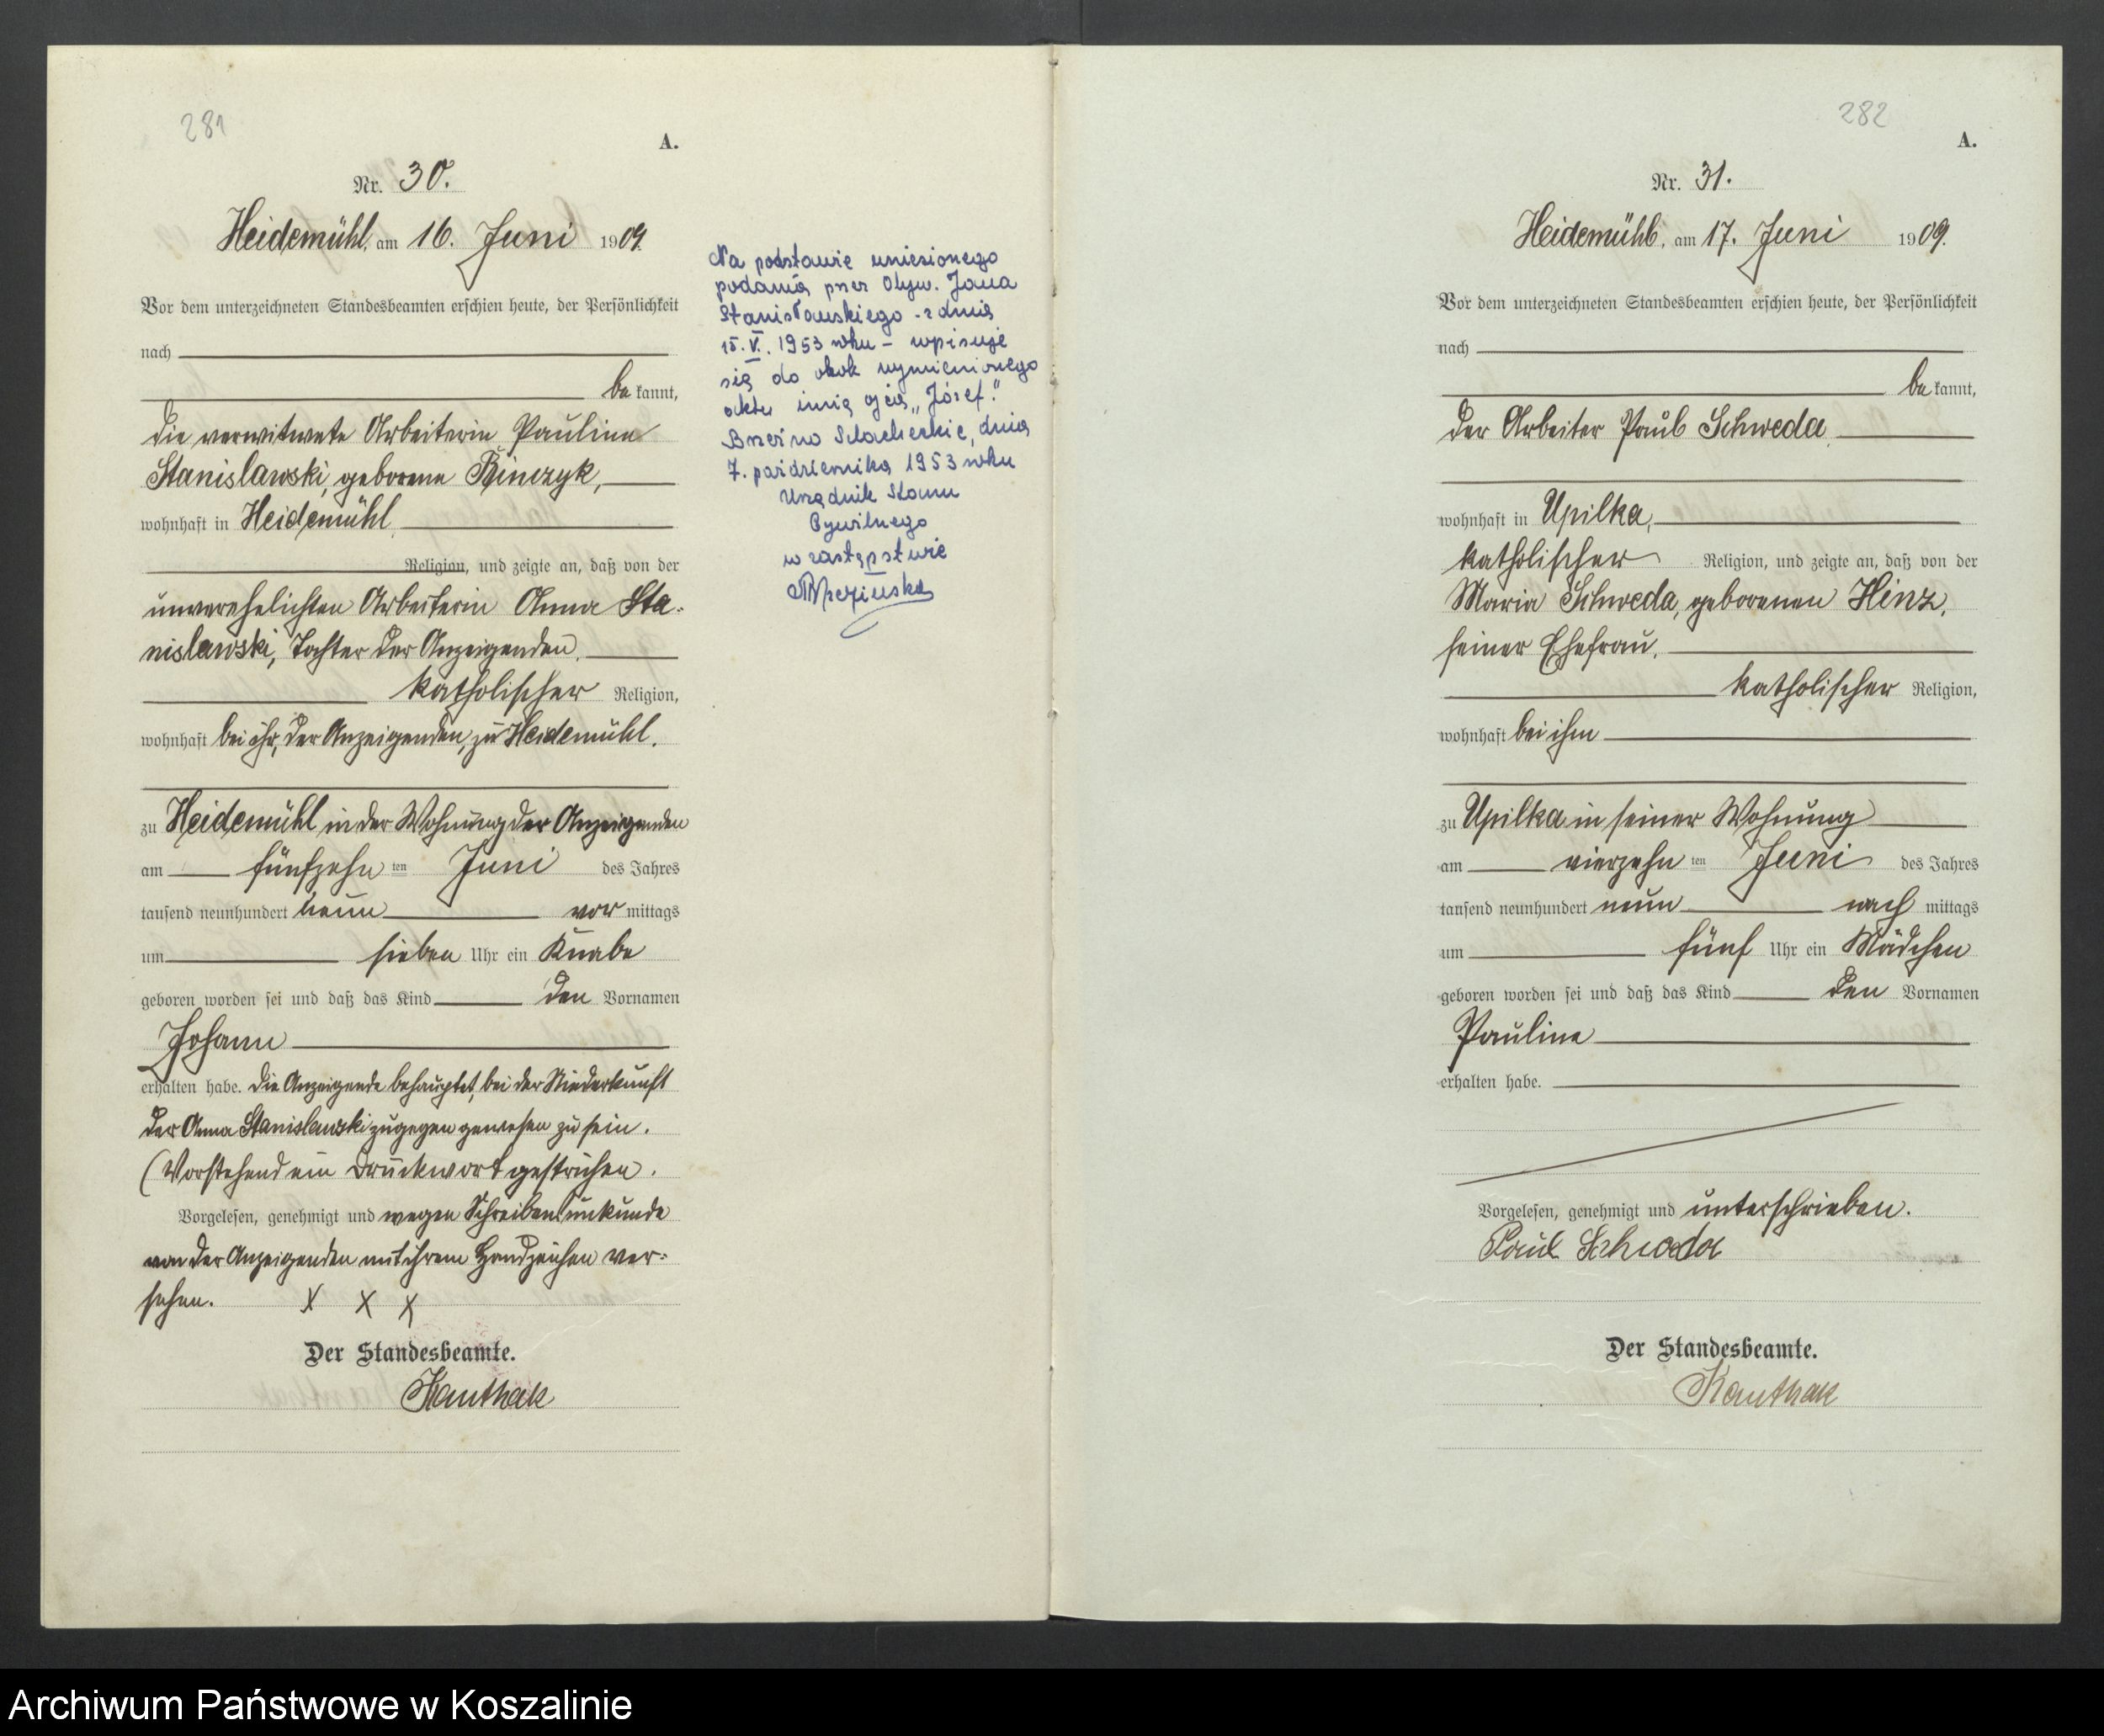 281
A.
Nr. 30.
Heidemühl, am 16. Juni 1909.
Vor dem unterzeichneten Standesbeamten erschien heute, der Persönlichkeit
nach
be kannt,
die verwitwete Arbeiterin Pauline
Stanislawski, geborene
wohnhaft in Heidemühl,
Religion, und zeigte an, daß von der
unverehelichten Arbeiterin Anna Sta-
nislawski, Tochter der Anzeigenden,
katholischer Religion,
wohnhaft bei ihr, der Anzeigenden, zu Heidemühl.
zu Heidemühl in der Wohnung der Anzeigenden
am fünfzehn ten Juni des Jahres
tausend neunhundert neun vor mittags
um sieben Uhr ein Knabe
geboren worden sei und daß das Kind den Vornamen
Johann
erhalten habe. Die Anzeigende behauptet, bei der Niederkunft
der Anna Stanislawski zugegen gewesen zu sein.
(Vorstehend ein Druckwort gestrichen.
Vorgelesen, genehmigt und wegen Schreibensunkunde
von der Anzeigenden mit ihrem Handzeichen ver-
sehen. X X X
Der Standesbeamte.
Kauthak
Na podstawie wniesionego
podania przez Obyw. Jana
Stanisławskiego z dnia
15. V. 1953 roku – wpisuje
się do obok wymienionego
aktu imię ojca „Józef".
Brzeźno Szlacheckie, dnia
7. października 1953 roku
Urzędnik Stanu
Cywilnego
w zastępstwie
282
A.
Nr. 31.
Heidemühl, am 17. Juni 1909.
Vor dem unterzeichneten Standesbeamten erschien heute, der Persönlichkeit
nach
be kannt,
der Arbeiter Paul Schweda,
wohnhaft in Upilka,
katholischer Religion, und zeigte an, daß von der
Maria Schweda, geborenen Hinz,
seiner Ehefrau,
katholischer Religion,
wohnhaft bei ihm
zu Upilka in seiner Wohnung
am vierzehn ten Juni des Jahres
tausend neunhundert neun nach mittags
um fünf Uhr ein Mädchen
geboren worden sei und daß das Kind den Vornamen
Pauline
erhalten habe.
Vorgelesen, genehmigt und unterschrieben.
Paul Schweda
Der Standesbeamte.
Kauthak
Archiwum Państwowe w Koszalinie